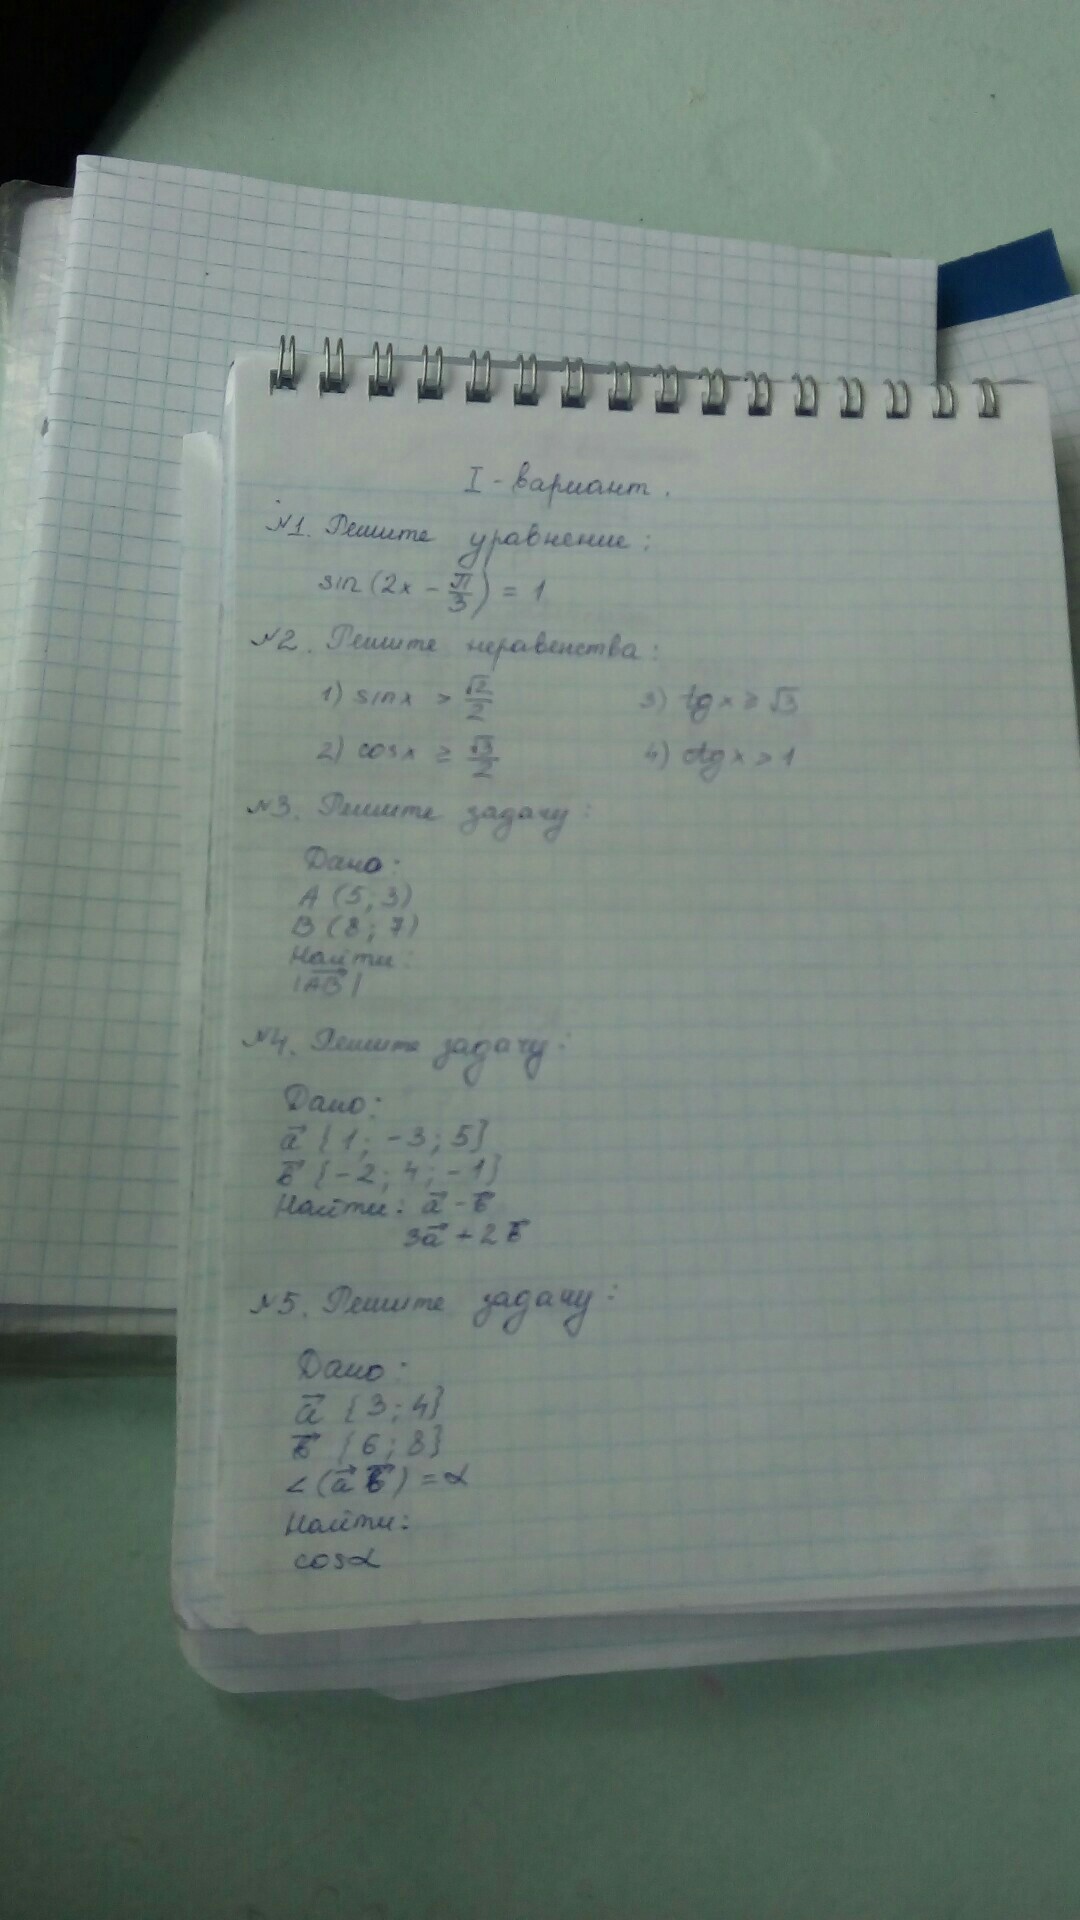 I - вариант.
№1. Решите уравнение:
sin(2x - π/3) = 1
№2. Решите неравенства:
1) sinx > √2/2 3) tgx ≥ √3
2) cosx ≥ √3/2 4) ctgx > 1
№3. Решите задачу:
Дано:
A (5; 3)
B (8; 7)
Найти:
|AB|
№4. Решите задачу:
Дано:
a⃗ {1; -3; 5}
b⃗ {-2; 4; -1}
Найти: a⃗ - b⃗
3a⃗ + 2b⃗
№5. Решите задачу:
Дано:
a⃗ {3; 4}
b⃗ {6; 8}
∠(a⃗ b⃗) = α
Найти:
cosα